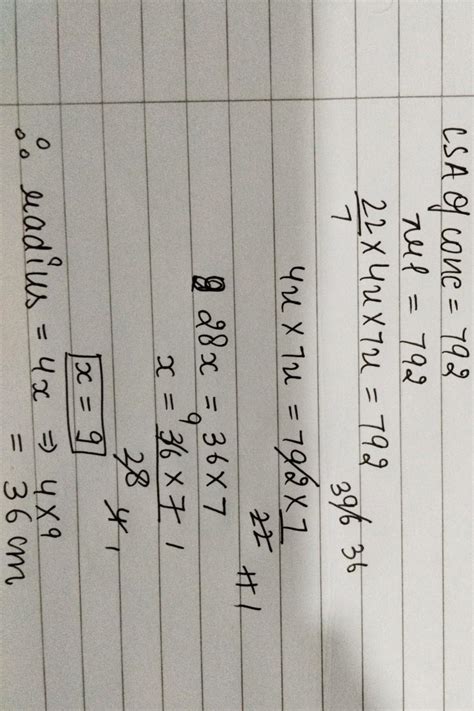 CSA of cone = 792
πrl = 792
22/7 × 4x × 7x = 792
396 36
4x × 7x = 792 × 7
22
11 1
28x = 36 × 7
9
x = 36 × 7 1
28
4 1
x = 9
∴ radius = 4x ⇒ 4×9
= 36 cm